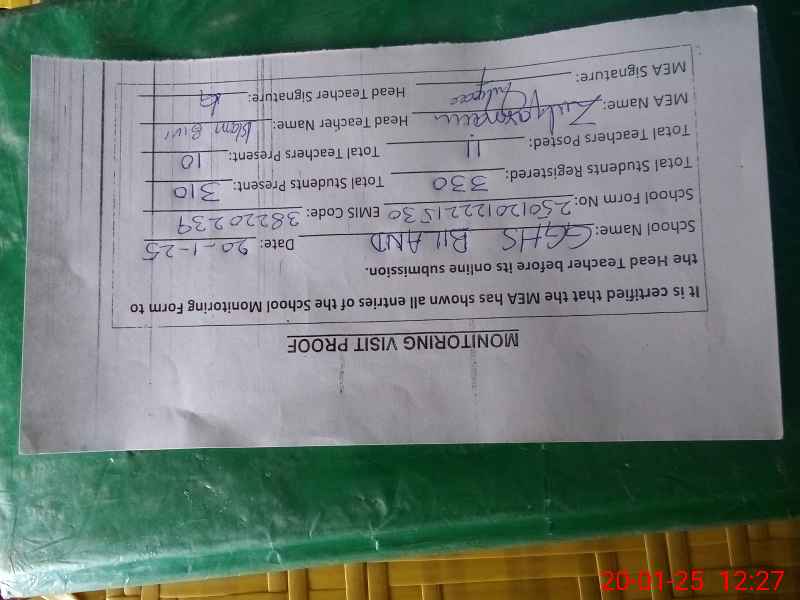 MONITORING VISIT PROOF
It is certified that the MEA has shown all entries of the School Monitoring Form to
the Head Teacher before its online submission.
School Name: GGHS BILAND Date: 20-1-25
School Form No: 25012012221530 EMIS Code: 38220239
Total Students Registered: 330 Total Students Present: 310
Total Teachers Posted: 11 Total Teachers Present: 10
MEA Name: Head Teacher Name: Islam Bivi
MEA Signature: Head Teacher Signature:
20-01-25 12:27